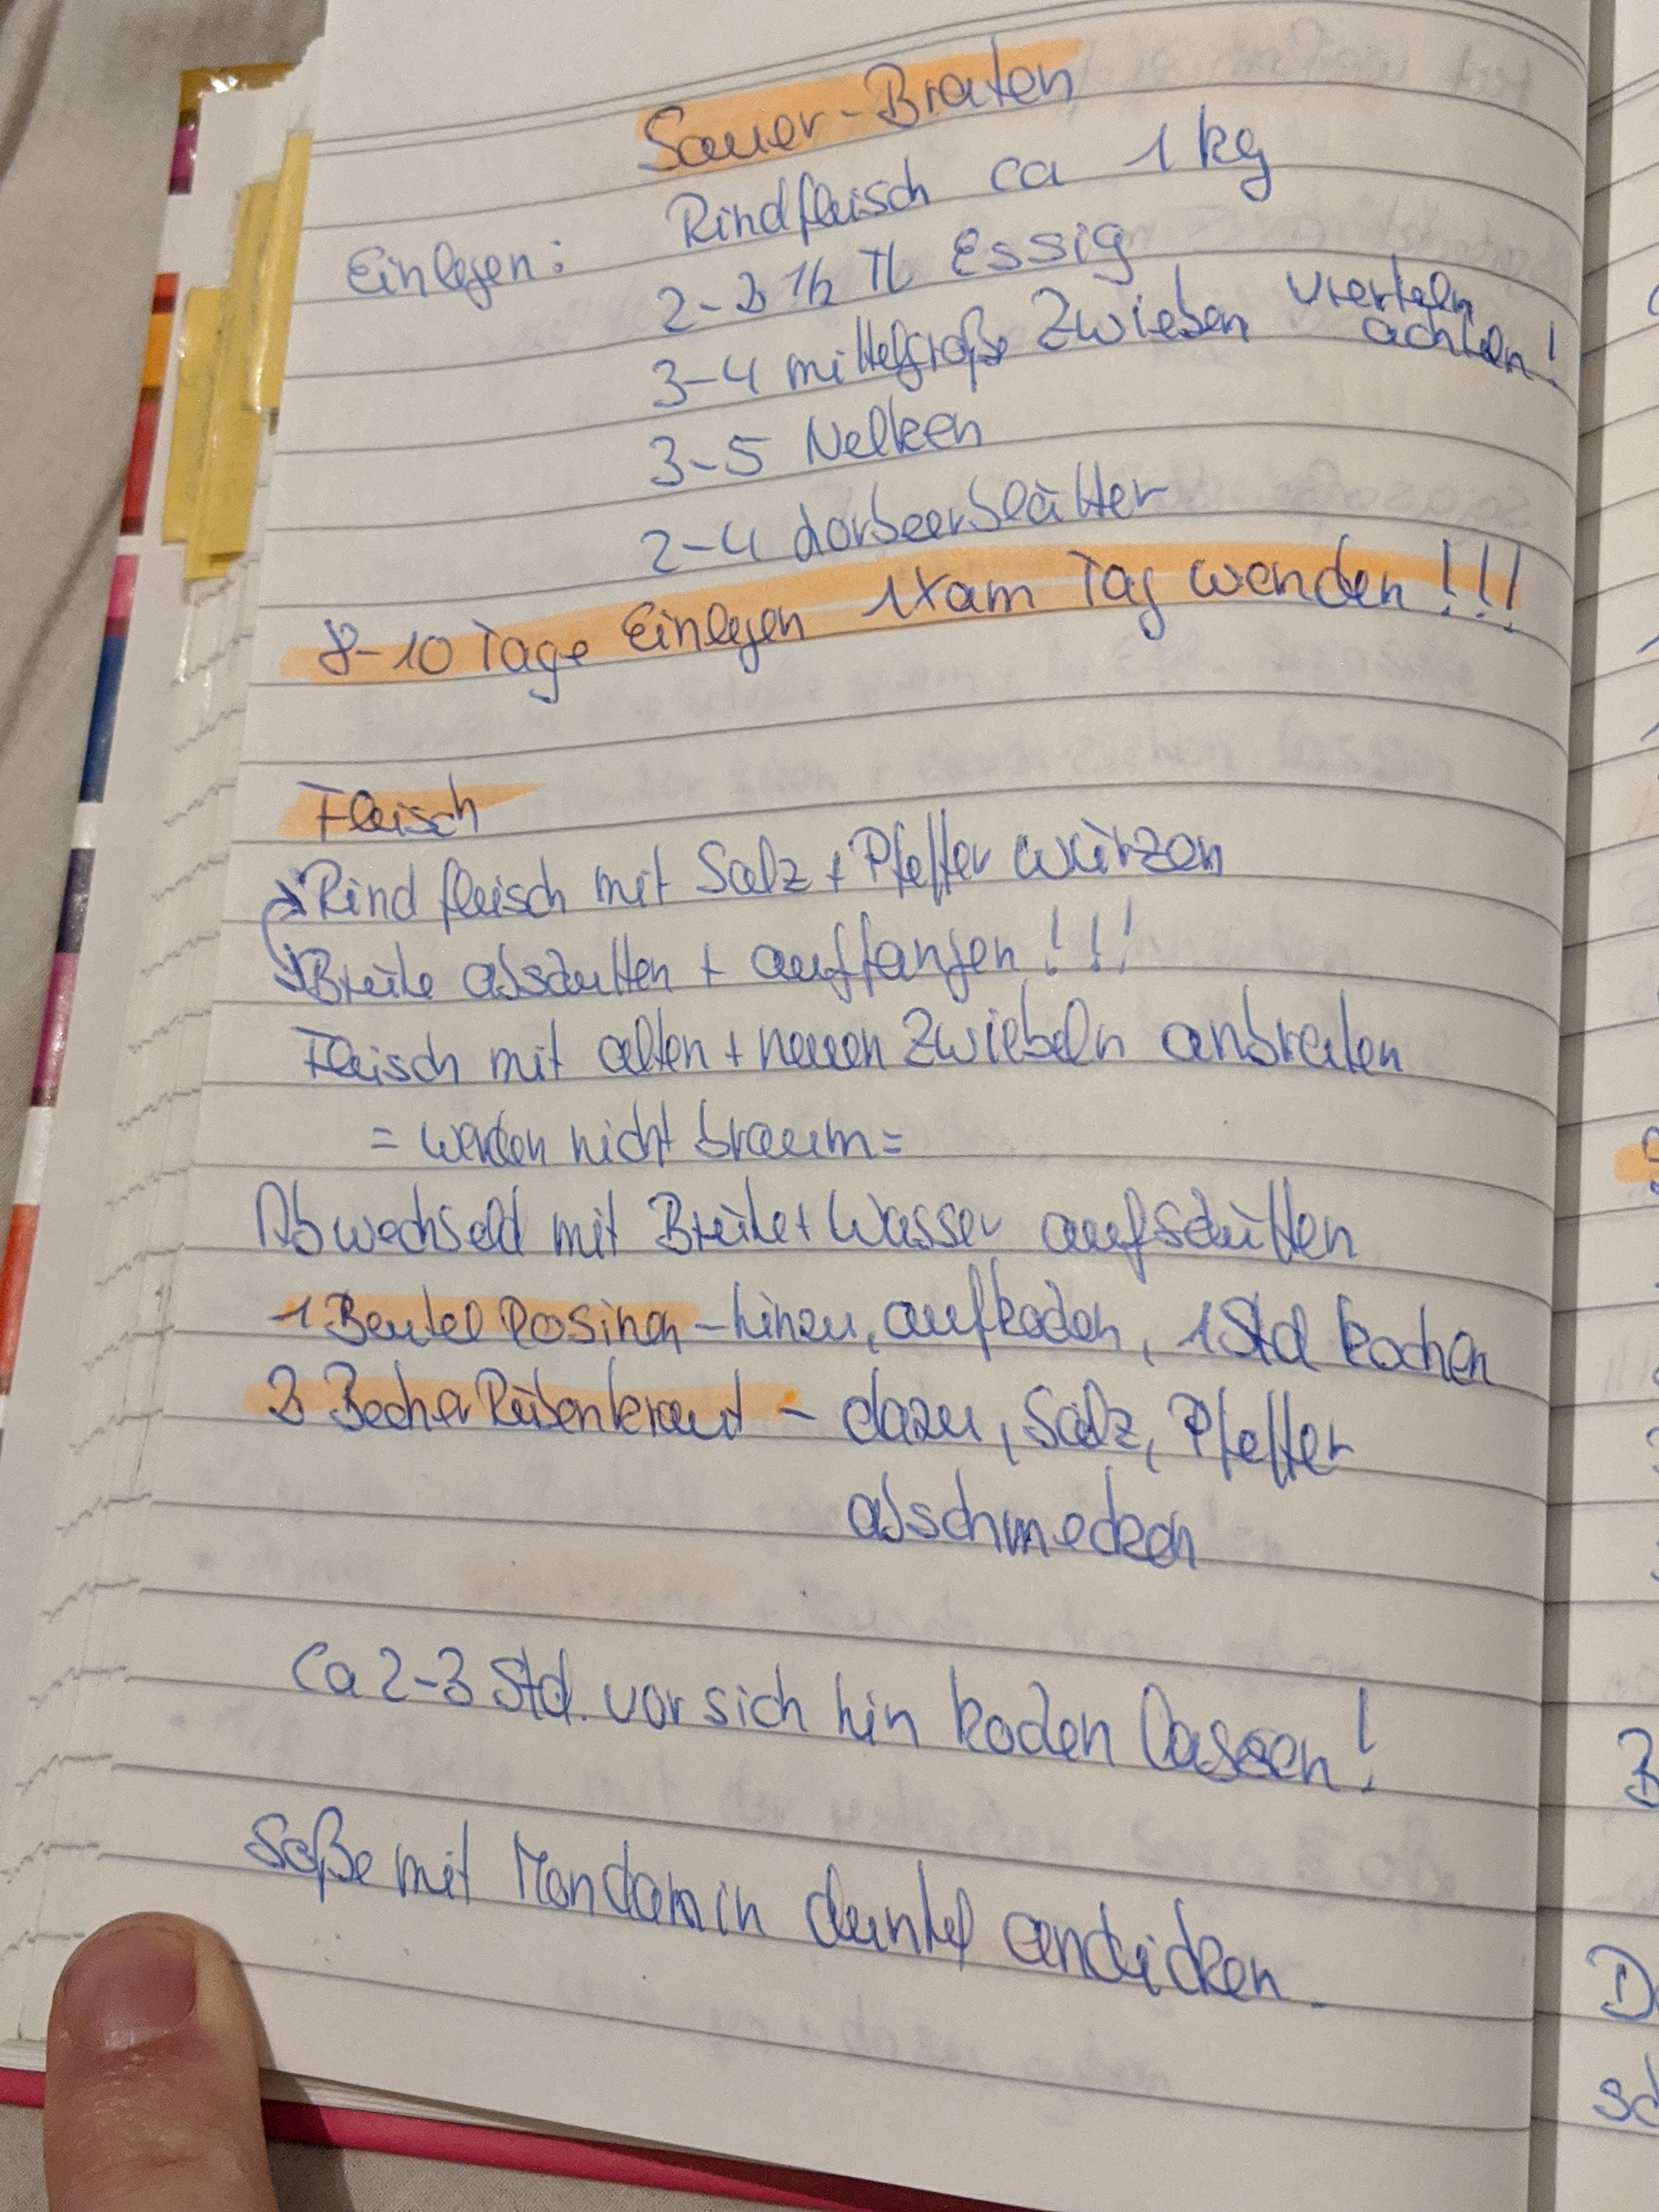 Sauer-Braten
Rindfleisch ca 1 kg
Einlegen:
2-2 1/2 TL Essig
3-4 mittelgroße Zwieben vierteln
achteln!
3-5 Nelken
2-4 Lorbeerblätter
8-10 Tage Einlegen 1x am Tag wenden!!!
Fleisch
Rindfleisch mit Salz + Pfeffer würzen
Brühe abschütten + auffangen!!!
Fleisch mit alten + neuen Zwiebeln anbraten
= werden nicht braun =
Abwechseld mit Brühe + Wasser aufschütten
1 Beutel Rosinen - hinzu, aufkochen, 1 Std kochen
Becher Rübenkraut - dazu, Salz, Pfeffer
abschmecken
Ca 2-3 Std. vor sich hin kochen lassen!
Soße mit Mondamin dunkel andicken.